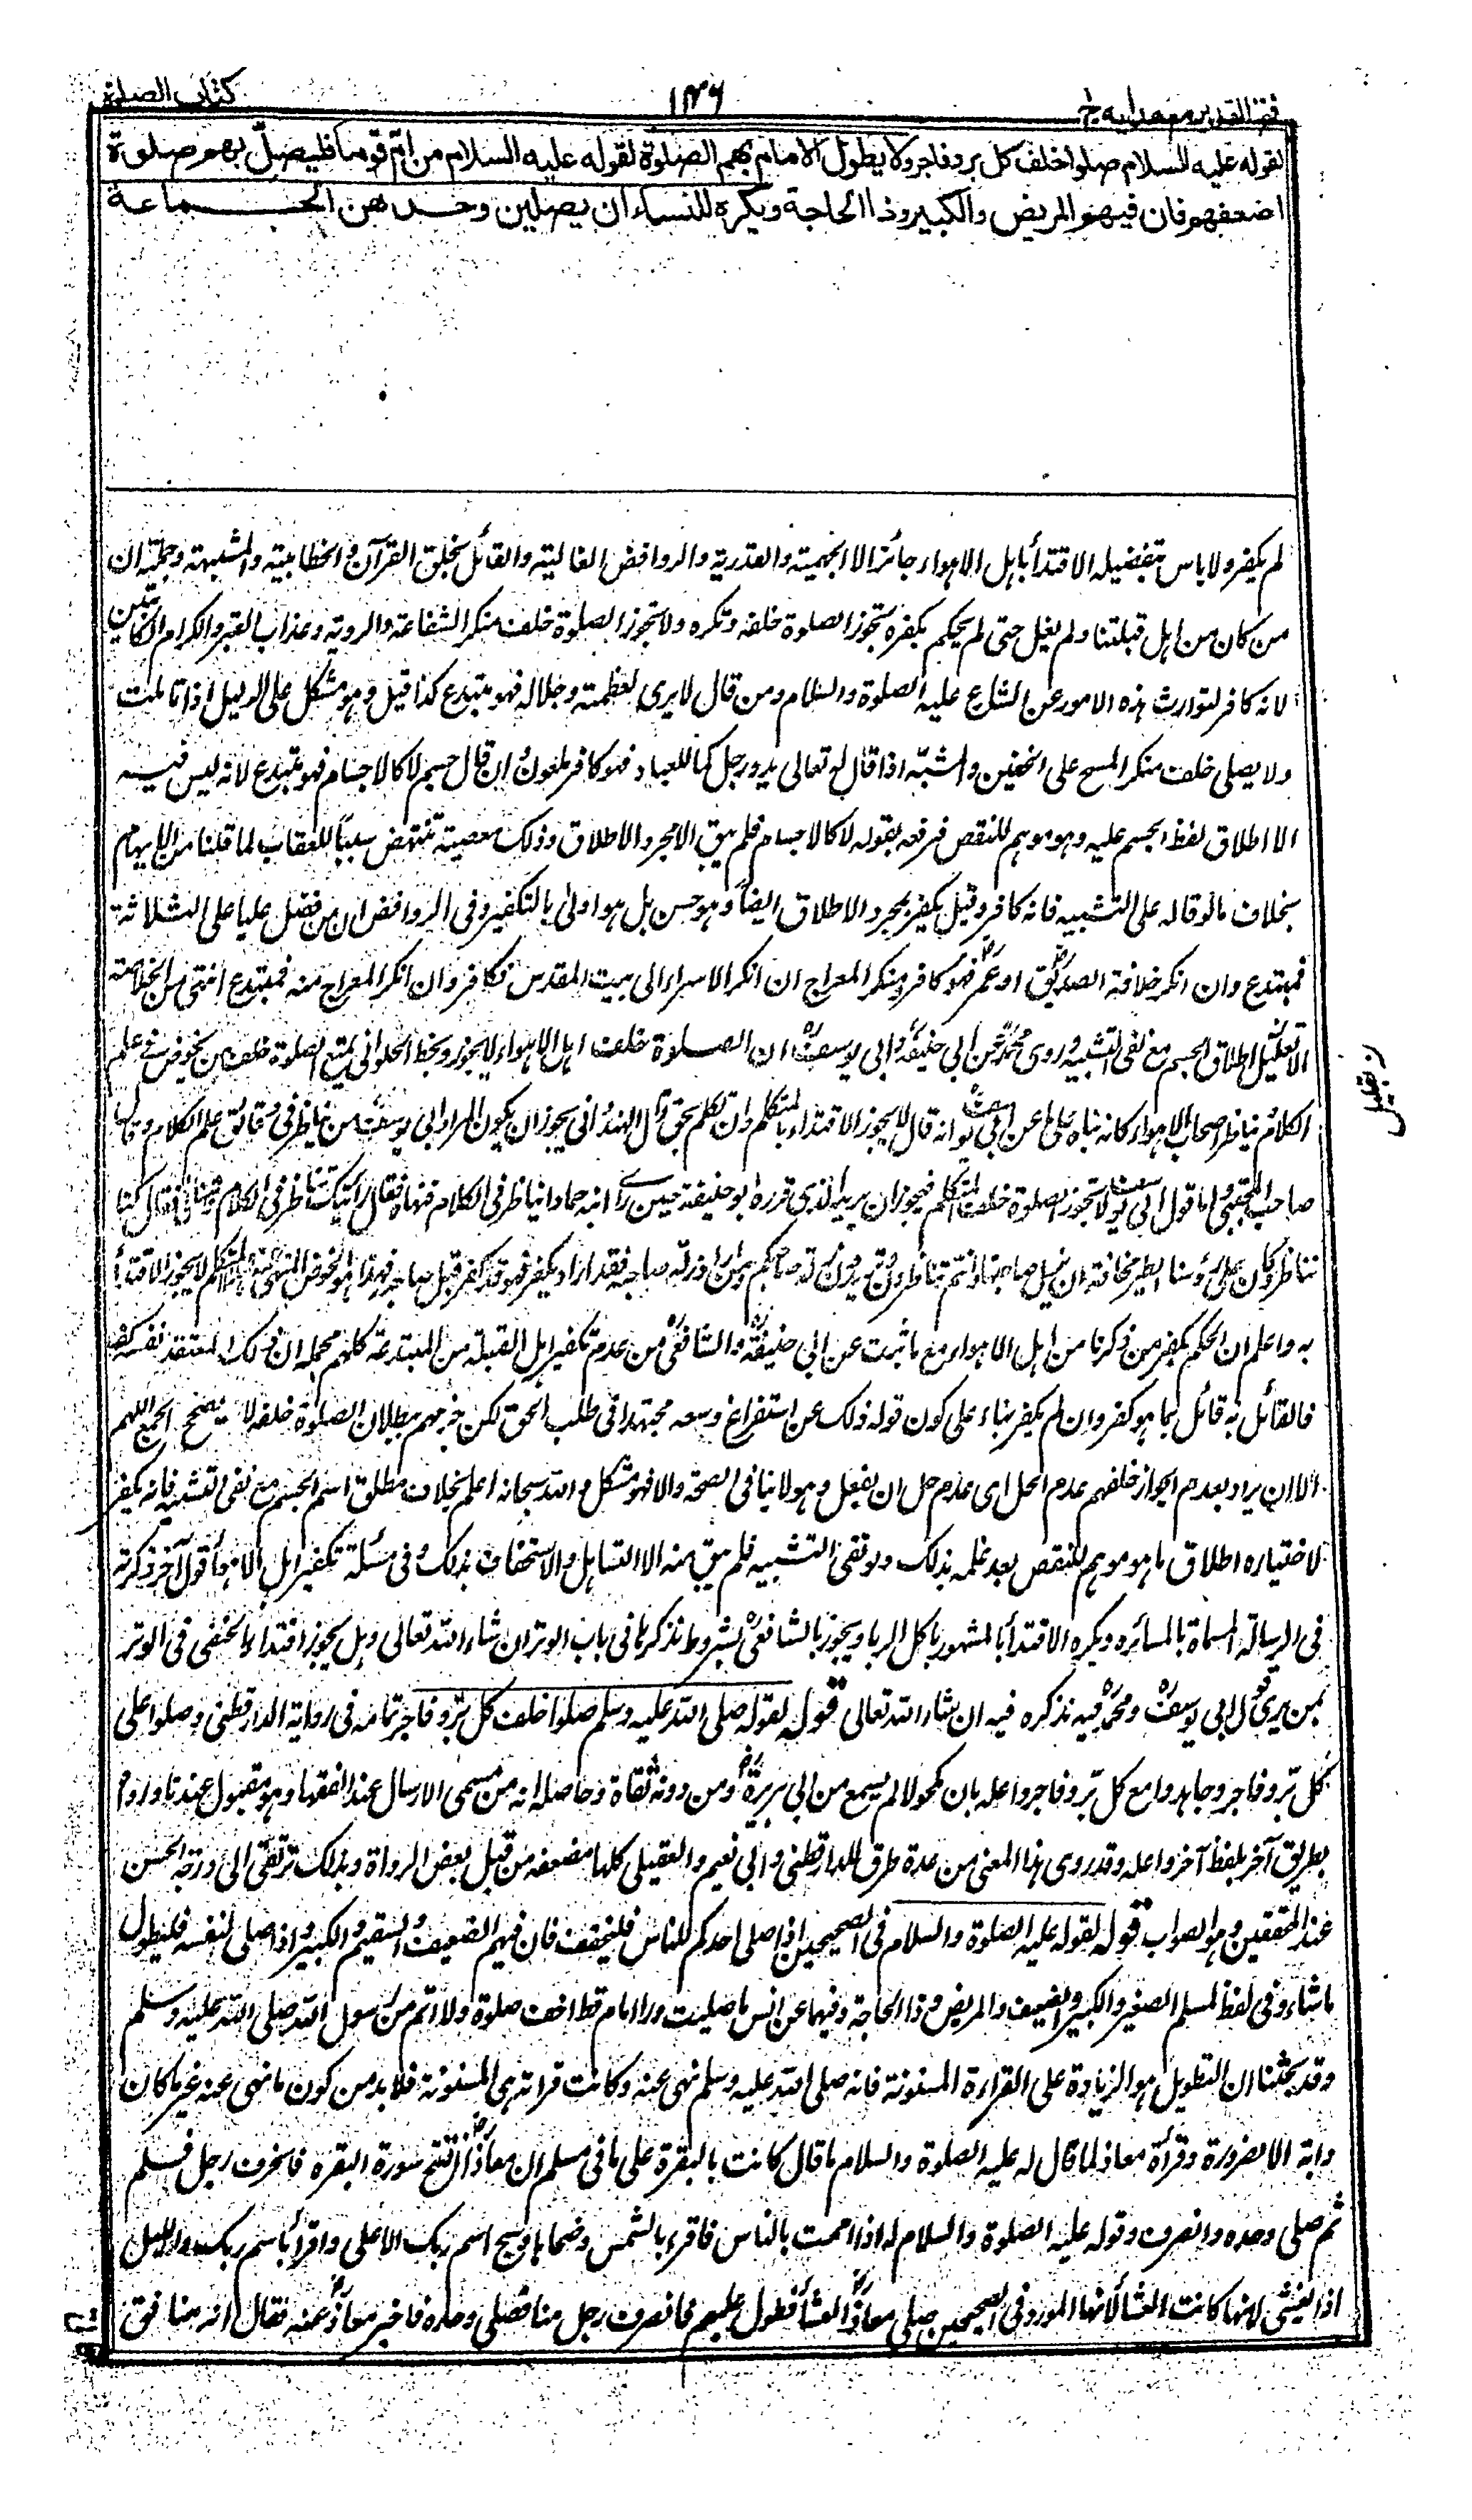 فتح القدير مع هدايه ج ١
١٤٦
كتاب الصلوة
لقوله عليه السلام صلوا خلف كل بر وفاجر ولا يطول الامام بهم الصلوة لقوله عليه السلام من امّ قوما فليصلّ بهم صلوة
اضعفهم فان فيهم المريض والكبير وذا الحاجة ويكره للنساء ان يصلين وحدهن الجماعة
لم يكفر ولا باس بتفصيله الاقتدأ باهل الاهواء جائز الا الجهمية والقدرية والروافض الغالية والقائل بخلق القرآن والخطابية والمشبهة وجملته ان
من كان من اهل قبلتنا ولم يغل حتى لم يحكم بكفره تجوز الصلوة خلفه وتكره ولا تجوز الصلوة خلف منكر الشفاعة والروية وعذاب القبر والكرام الكاتبين
لانه كافر لتوارث هذه الامور عن الشارع عليه الصلوة والسلام ومن قال لا يرى لعظمته وجلاله فهو مبتدع كذا قيل وهو مشكل على الدليل اذا تاملت
ولا يصلى خلف منكر المسح على الخفين والمشبّه اذا قال له تعالى يد ورجل كما للعباد فهو كافر ملعون وان قال جسم لا كالاجسام فهو مبتدع لانه ليس فيه
الا اطلاق لفظ الجسم عليه وهو موهم للنقص فرفعه بقوله لا كالاجسام فلم يبق الا مجرد الاطلاق وذلك معصية تنتهض سببًا للعقاب لما قلنا من الايهام
بخلاف ما لو قاله على التشبيه فانه كافر وقيل يكفر بمجرد الاطلاق ايضًا وهو حسن بل هو اولى بالتكفير وفى الروافض ان من فضل عليا على الثلاثة
فمبتدع وان انكر خلافة الصديق او عمر فهو كافر ومنكر المعراج ان انكر الاسراء الى بيت المقدس فكافر وان انكر المعراج منه فمبتدع انتهى من الخلاصة
الا تعليل اطلاق الجسم مع نفى التشبيه وروى محمد عن ابي حنيفة وابى يوسف ان الصلوة خلف اهل الاهواء لا يجوز وبخط الحلوانى يمنع الصلوة خلف من يخوض فى علم
الكلام ويناظر اصحاب الاهواء كانه بناه على ما عن ابى يوسف انه قال لا يجوز الاقتداء بالمتكلم وان تكلم بحق قال الهندوانى يجوز ان يكون المراد ابى يوسف من يناظر فى دقائق علم الكلام وقال
صاحب المجتبى واما قول ابى يوسف لا تجوز الصلوة خلف المتكلم فيجوز ان يريد الذى قرره ابو حنيفة حين راى ابنه حمادا يناظر فى الكلام فنهاه فقال رايتك تناظر فى الكلام وتنهانى فقال كنا
نناظر وكان على رؤسنا الطير مخافة ان يزل صاحبنا وانتم تناظرون وتريدون زلة صاحبكم ومن اراد زلة صاحبه فقد اراد ان يكفر فهو قد كفر قبل صاحبه فهذا هو الخوض المنهى عنه وهذا المتكلم لا يجوز الاقتدأ
به واعلم ان الحكم بكفر من ذكرنا من اهل الاهواء مع ما ثبت عن ابي حنيفة والشافعى من عدم تكفير اهل القبلة من المبتدعة كلهم محمله ان ذلك المعتقد نفسه كفر
فالقائل به قائل بما هو كفر وان لم يكفر بناء على كون قوله ذلك عن استفراغ وسعه مجتهدا فى طلب الحق لكن جزمهم ببطلان الصلوة خلفه لا يصحح الجمع اللهم
الا ان يراد بعدم الجواز خلفهم عدم الحل اى عدم حل ان يفعل وهو لا ينافى الصحة والا فهو مشكل والله سبحانه اعلم بخلاف مطلق اسم الجسم مع نفى التشبيه فانه يكفر
لاختياره اطلاق ما هو موهم للنقص بعد علمه بذلك ولو نفى التشبيه فلم يبق منه الا التساهل والاستخفاف بذلك وفى مسئلة تكفير اهل الاهواء قول آخر ذكرته
فى الرسالة المسماة بالمسائره ويكره الاقتدأ بالمشهور باكل الربا ويجوز بالشافعى بشروط نذكرها فى باب الوتر ان شاء الله تعالى وهل يجوز اقتداء الحنفى فى الوتر
بمن يرى قول ابى يوسف ومحمد فيه نذكره فيه ان شاء الله تعالى قوله لقوله صلى الله عليه وسلم صلوا خلف كل بر وفاجر تمامه فى رواية الدارقطنى وصلوا على
كل بر وفاجر وجاهدوا مع كل بر وفاجر واعله بان مكحولا لم يسمع من ابي هريرة ومن دونه ثقاة وحاصله انه من مسمى الارسال عند الفقهاء وهو مقبول عندنا ورواه
بطريق آخر بلفظ آخر واعله وقد روى هذا المعنى من عدة طرق للدارقطنى وابى نعيم والعقيلى كلها مضعفة من قبل بعض الرواة وبذلك ترتقى الى درجة الحسن
عند المحققين وهو الصواب قوله لقوله عليه الصلوة والسلام فى الصحيحين اذا صلى احدكم للناس فليخفف فان فيهم الضعيف والسقيم والكبير واذا صلى لنفسه فليطول
ما شاء وفى لفظ لمسلم الصغير والكبير والضعيف والمريض وذا الحاجة وفيهما عن انس ما صليت وراء امام قط اخف صلوة ولا اتم من رسول الله صلى الله عليه وسلم
وقد بحثنا ان التطويل هو الزيادة على القراءة المسنونة فانه صلى الله عليه وسلم نهى عنه وكانت قراته هى المسنونة فلا بد من كون ما نهى عنه غير ما كان
دابه الا لضرورة وقرأة معاذ لما قال له عليه الصلوة والسلام ما قال كانت بالبقرة على ما فى مسلم ان معاذًا افتتح سورة البقره فانحرف رجل فسلم
ثم صلى وحده وانصرف وقوله عليه الصلوة والسلام له اذا اممت بالناس فاقرء بالشمس وضحاها وسبح اسم ربك الاعلى واقرأ باسم ربك والليل
اذا يغشى لانها كانت العشأ لانها المورد فى الصحيحين صلى معاذ العشأ فطول عليهم فانصرف رجل منا فصلى وحده فاخبر معاذ عنه فقال انه منافق